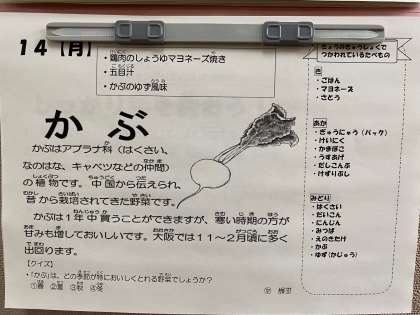 14【月】
・鶏肉のしょうゆマヨネーズ焼き
・五目汁
・かぶのゆず風味
かぶ
かぶはアブラナ科（はくさい、
なのはな、キャベツなどの仲間）
の植物です。中国から伝えられ、
昔から栽培されてきた野菜です。
かぶは1年中買うことができますが、寒い時期の方が
甘みも増しておいしいです。大阪では11～2月頃に多く
出回ります。
【クイズ】
・「かぶ」は、どの季節が特においしくとれる野菜でしょうか？
①春 ②夏 ③秋 ④冬
きょうのきゅうしょくで
つかわれているたべもの
き
・ごはん
・マヨネーズ
・さとう
あか
・ぎゅうにゅう（パック）
・けいにく
・かまぼこ
・うすあげ
・だしこんぶ
・けずりぶし
みどり
・はくさい
・だいこん
・にんじん
・みつば
・えのきたけ
・かぶ
・ゆず（かじゅう）